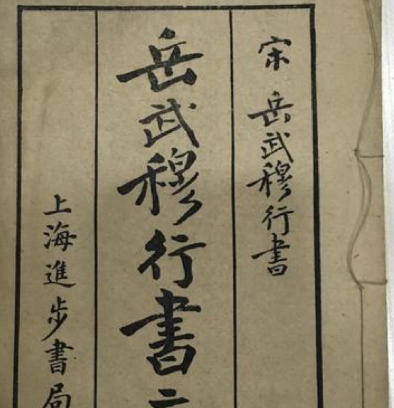 宋 岳武穆行書
岳武穆行書二
上海進步書局